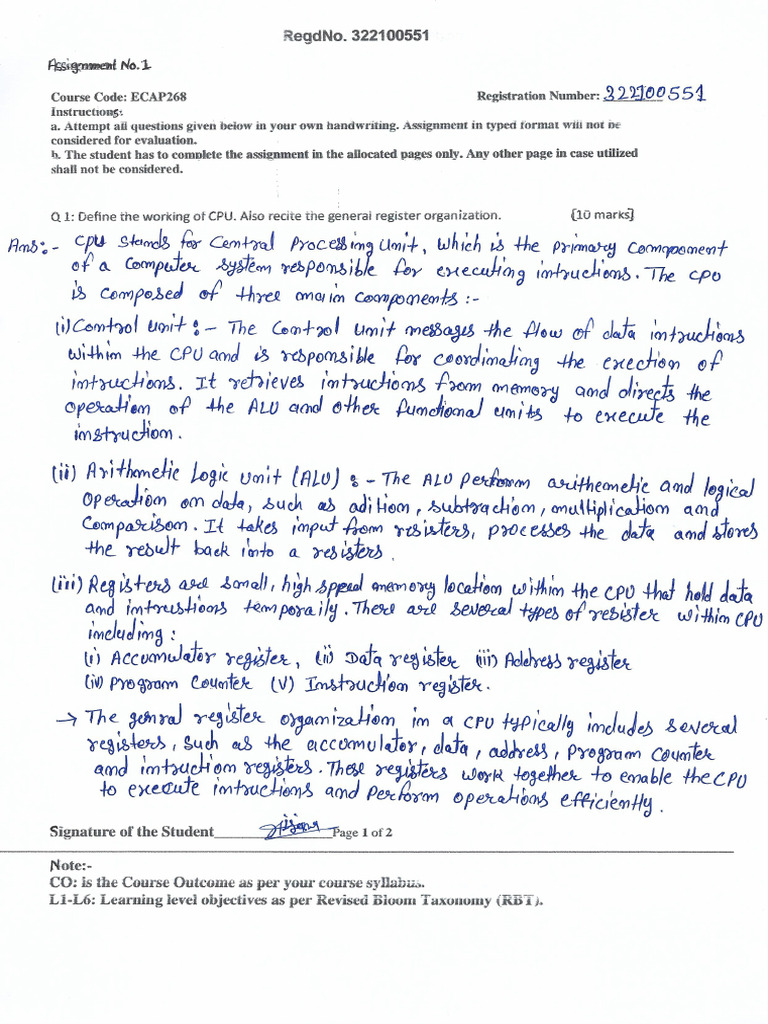 RegdNo. 322100551
Assignment No. 1
Course Code: ECAP268
Registration Number: 322100551
Instructions:
a. Attempt all questions given below in your own handwriting. Assignment in typed format will not be
considered for evaluation.
b. The student has to complete the assignment in the allocated pages only. Any other page in case utilized
shall not be considered.
Q 1: Define the working of CPU. Also recite the general register organization. [10 marks]
Ans:- CPU stands for Central Processing Unit, which is the primary comqponement
of a Computer system responsible for executing intructions. The CPU
is composed of three main components :-
(i) Control unit :- The Control Unit messages the flow of data intructions
within the CPU and is responsible for coordinating the exection of
intructions. It retrieves intructions from memory and directs the
operation of the ALU and other functional units to execute the
instruction.
(ii) Arithmetic Logic unit (ALU) :- The ALU perform arithemetic and logical
Operation on data, such as adition, subtraction, multiplication and
Comparison. It takes input from resisters, processes the data and stores
the result back into a resisters.
(iii) Registers are small, high speed memory location within the CPU that hold data
and intrustions temporaily. There are several types of resister within CPU
including :
(i) Accumulator register, (ii) Data register (iii) Address register
(iv) Program Counter (V) Instruction register.
→ The genral register organization in a CPU typically includes several
registers, such as the accumulator, data, address, program counter
and intruction registers. These registers work together to enable the CPU
to execute intructions and perform operations efficiently.
Signature of the Student Page 1 of 2
Note:-
CO: is the Course Outcome as per your course syllabus.
L1-L6: Learning level objectives as per Revised Bloom Taxonomy (RBT).